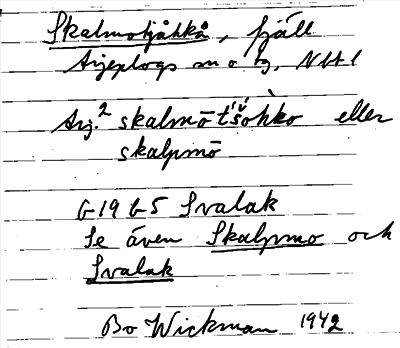 Skalmotjåkkå, fjäll
Arjeplogs sn o tg, Nbt l
Arj.² skalmō tšohko eller
skalpmō
G19 b5 Svalak
Se även Skalpmo och
Svalak
Bo Wickman 1942